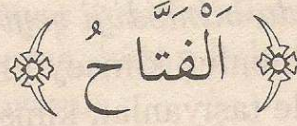 اَلْفَتَّاحُ